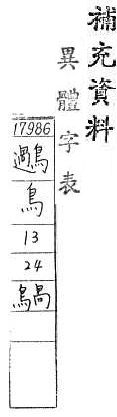 補充資料
異體字表
17986
鳥
13
24